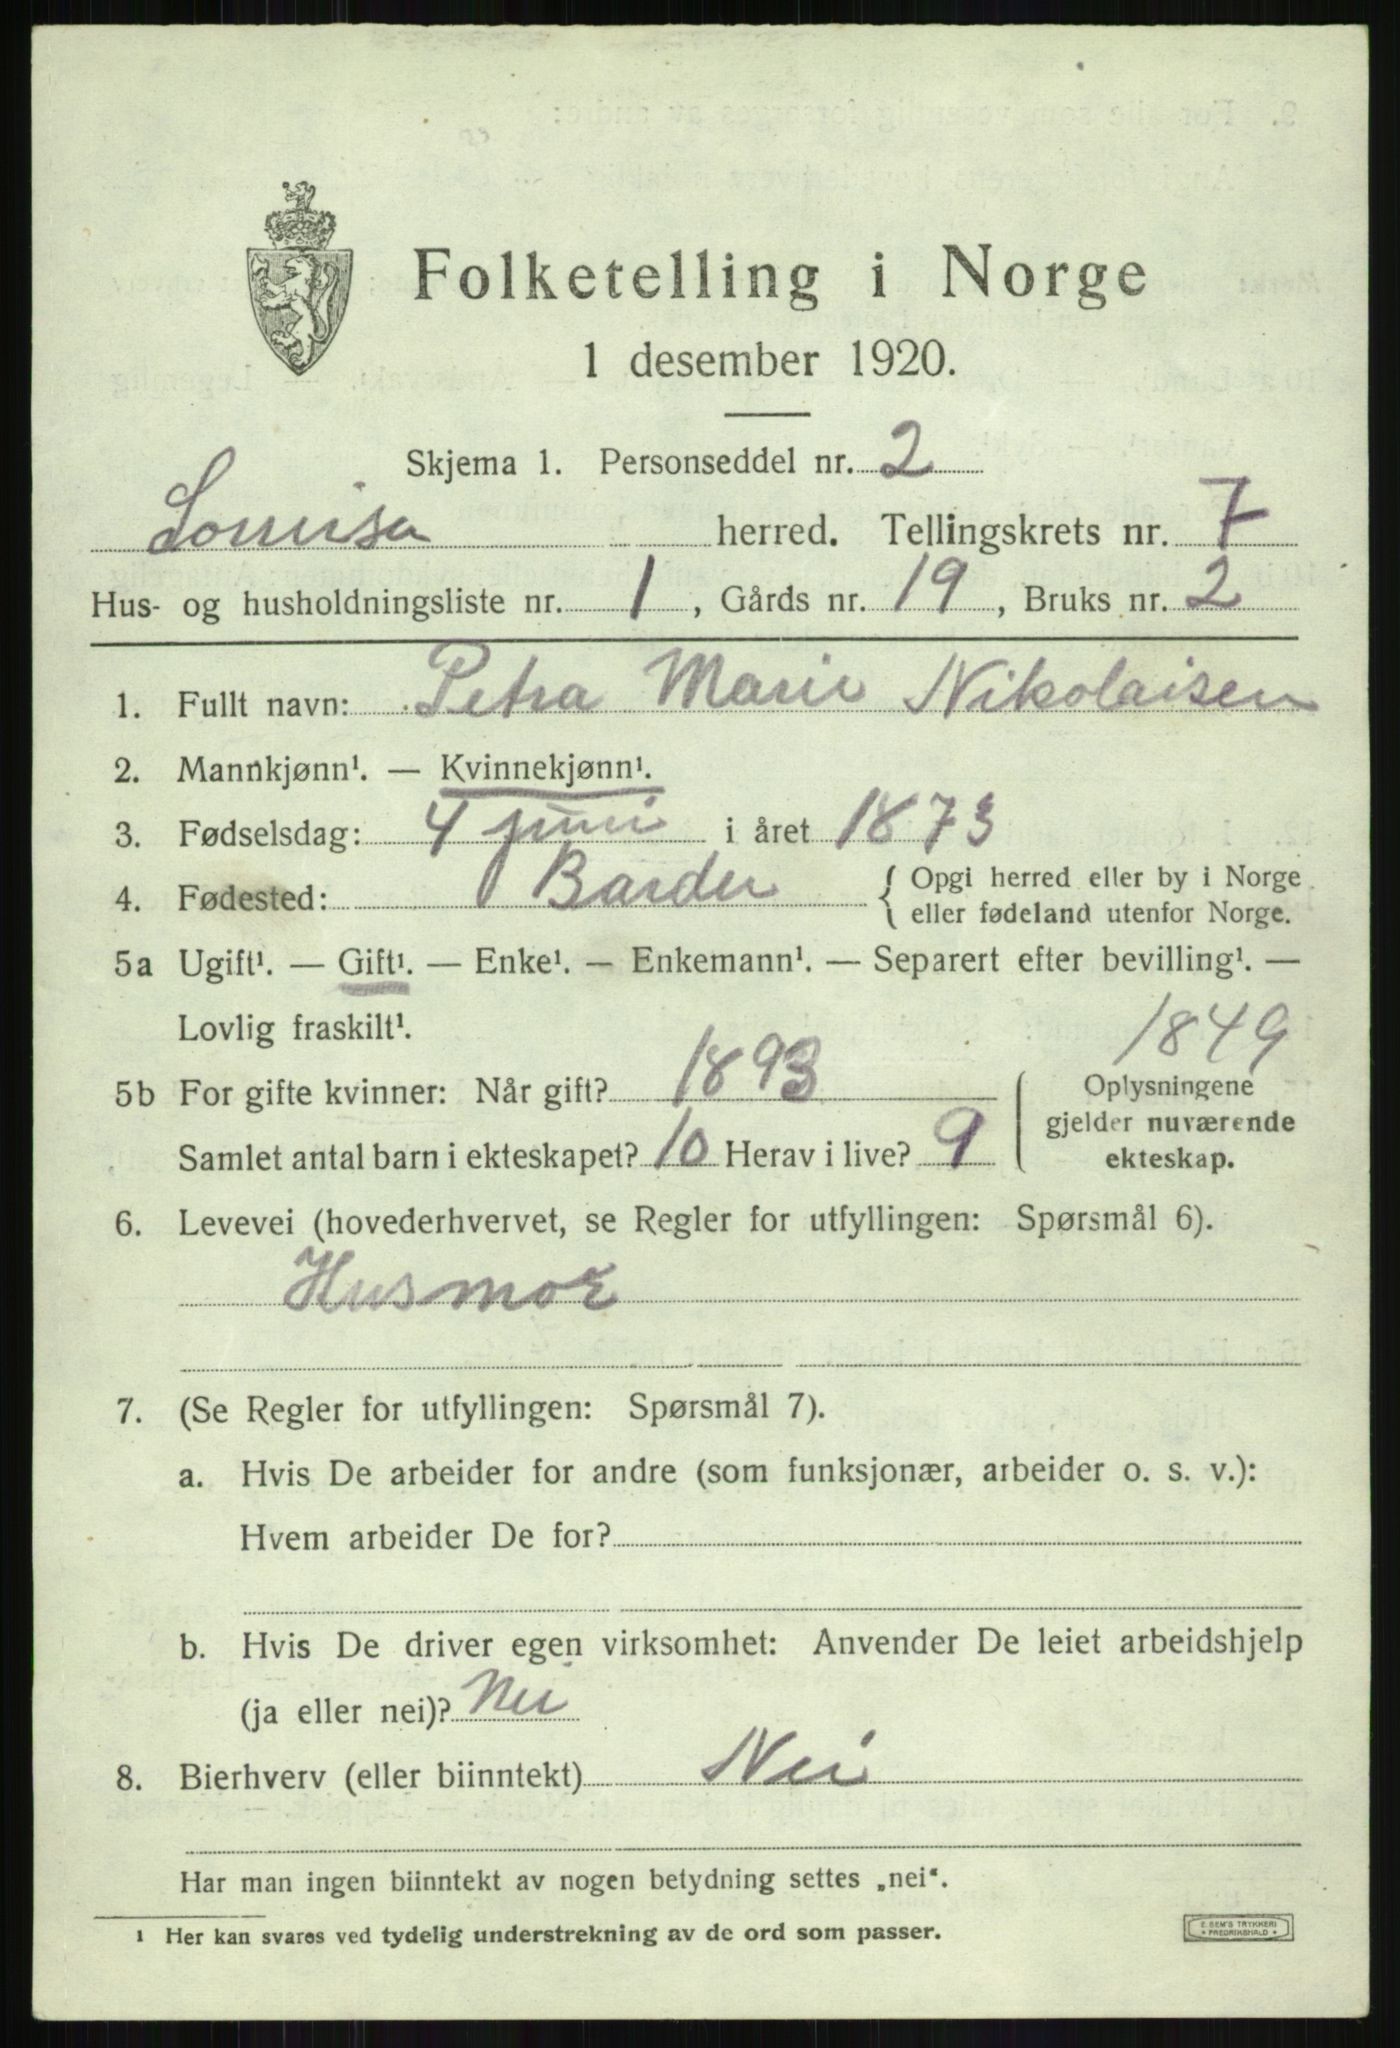 Folketelling i Norge
1 desember 1920.
Skjema 1. Personseddel nr. 2
herred. Tellingskrets nr. 7
Hus- og husholdningsliste nr. 1, Gårds nr. 19, Bruks nr. 2
1. Fullt navn: Petra Marie Nikolaisen
2. Mannkjønn¹. — Kvinnekjønn¹.
3. Fødselsdag: 4 juni i året 1873
4. Fødested: Bardu { Opgi herred eller by i Norge
eller fødeland utenfor Norge.
5a Ugift¹. — Gift¹. — Enke¹. — Enkemann¹. — Separert efter bevilling¹. —
Lovlig fraskilt¹.
1849
5b For gifte kvinner: Når gift? 1893
Samlet antal barn i ekteskapet? 10 Herav i live? 9
Oplysningene
gjelder nuværende
ekteskap.
6. Levevei (hovederhvervet, se Regler for utfyllingen: Spørsmål 6).
Husmor
7. (Se Regler for utfyllingen: Spørsmål 7).
a. Hvis De arbeider for andre (som funksjonær, arbeider o. s. v.):
Hvem arbeider De for?
b. Hvis De driver egen virksomhet: Anvender De leiet arbeidshjelp
(ja eller nei)? Nei
8. Bierhverv (eller biinntekt) Nei
Har man ingen biinntekt av nogen betydning settes „nei“.
¹ Her kan svares ved tydelig understrekning av de ord som passer.
E. SEM'S TRYKKERI
FREDRIKSHALD